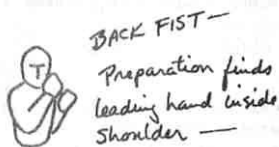 BACK FIST —
Preparation finds
leading hand inside
shoulder —
T